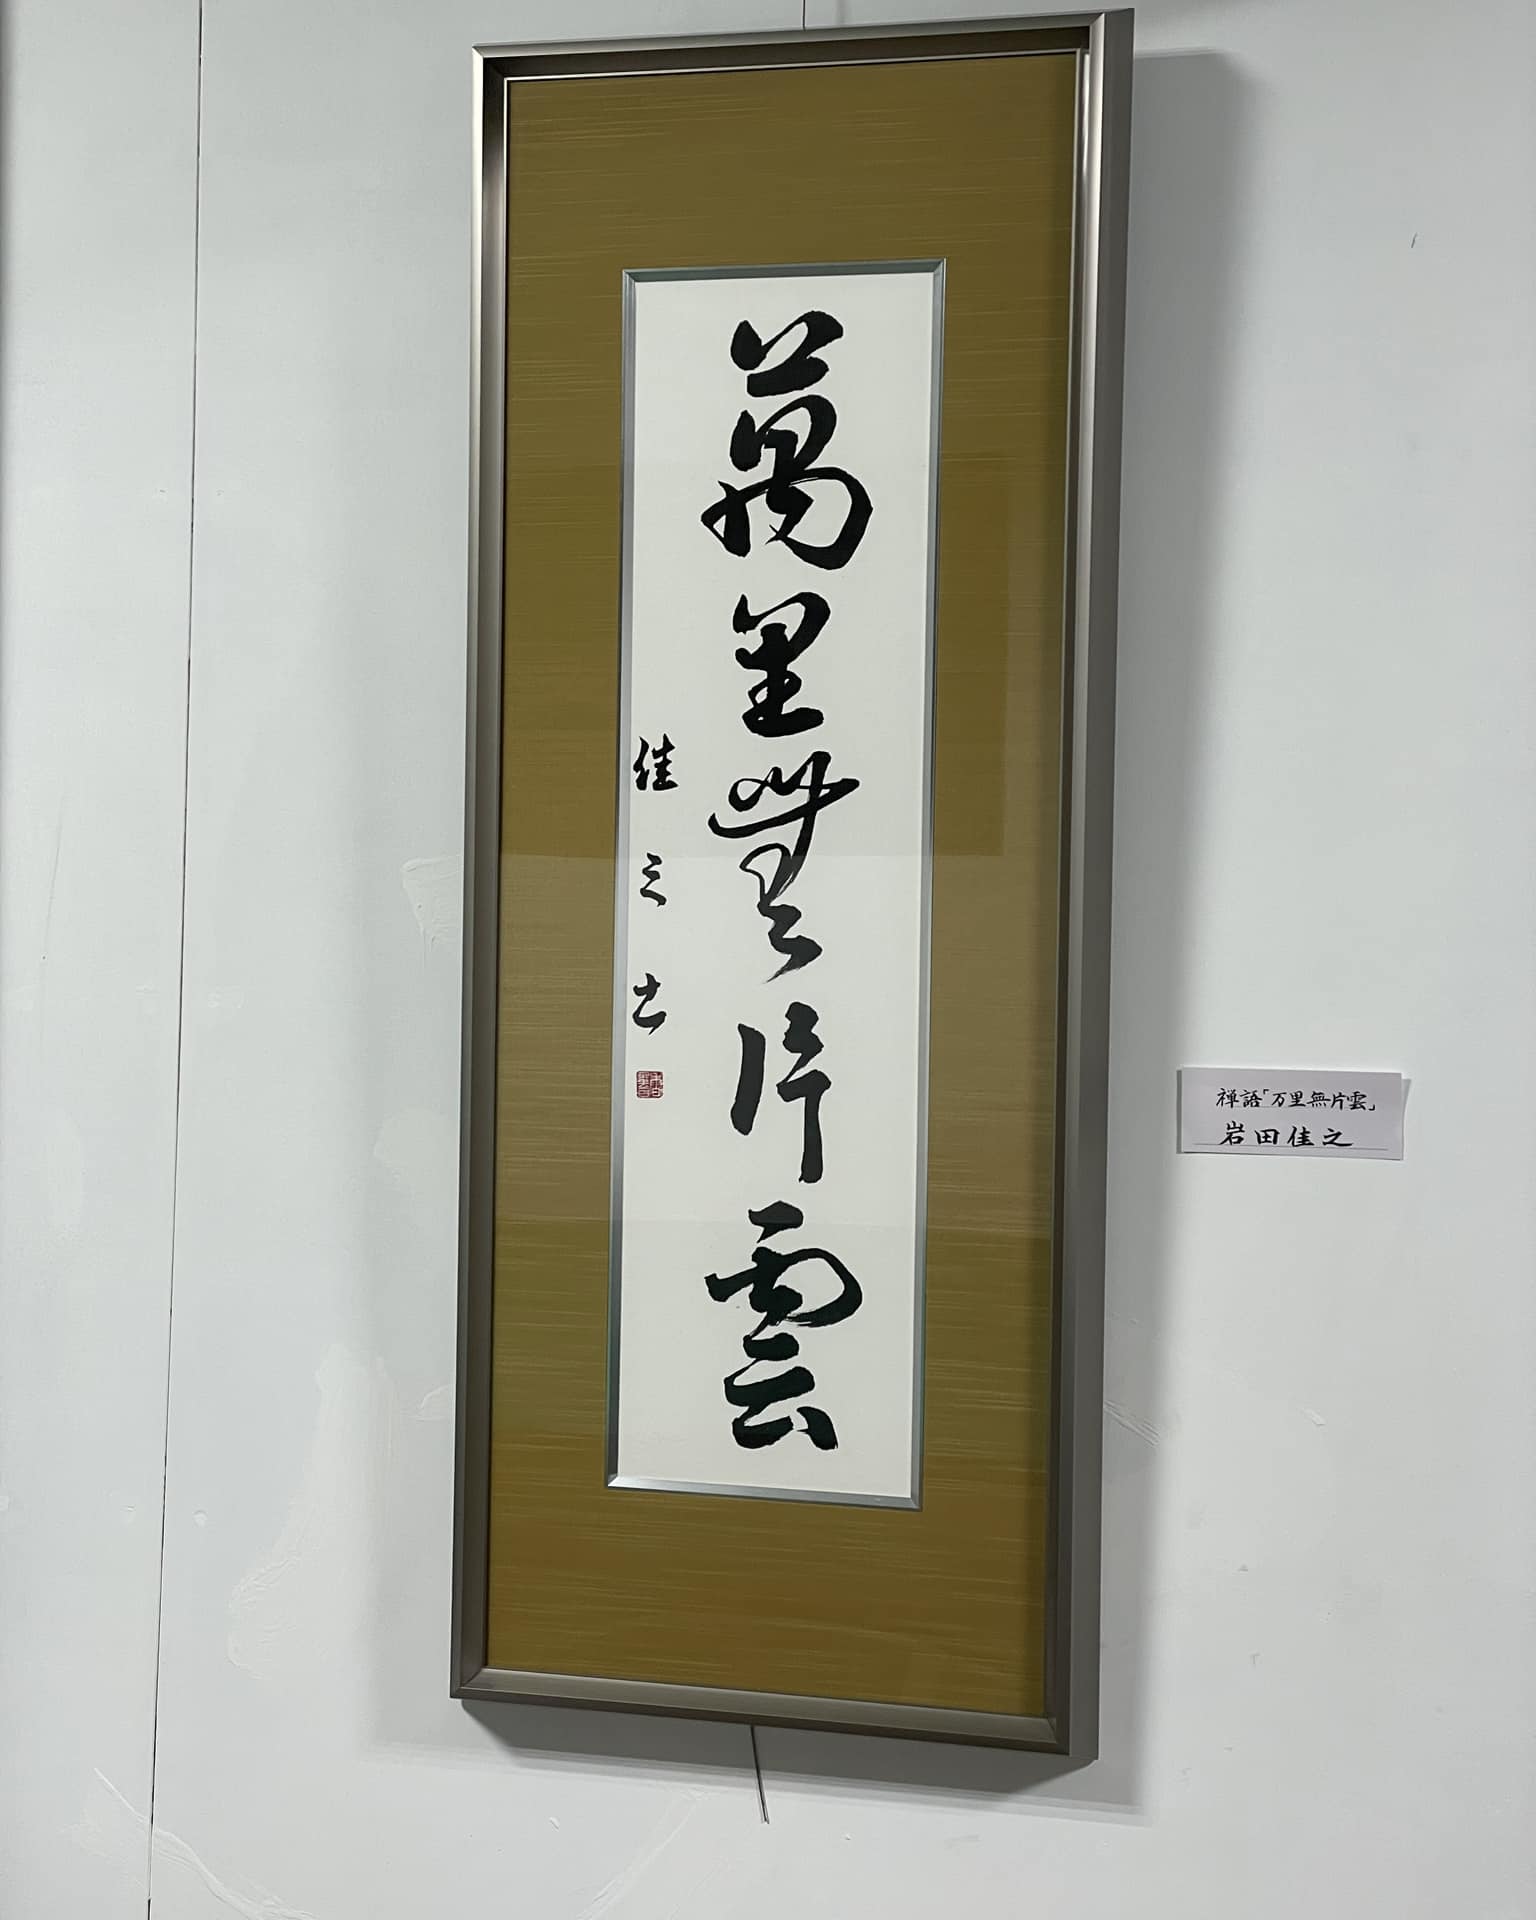 萬里無片雲
佳之士
禅語「万里無片雲」
岩田佳之